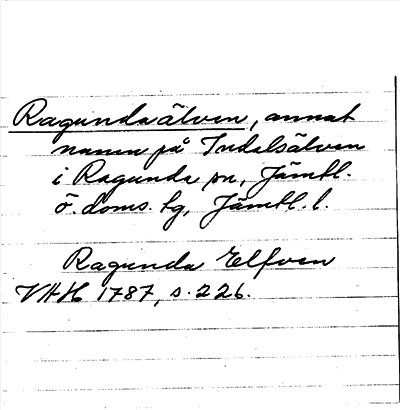 Ragundaälven, annat
namn på Indalsälven
i Ragunda sn, Jämtl.
ö. doms. tg, Jämtl. l.
Ragunda Elfven
VAH 1787, s. 226.